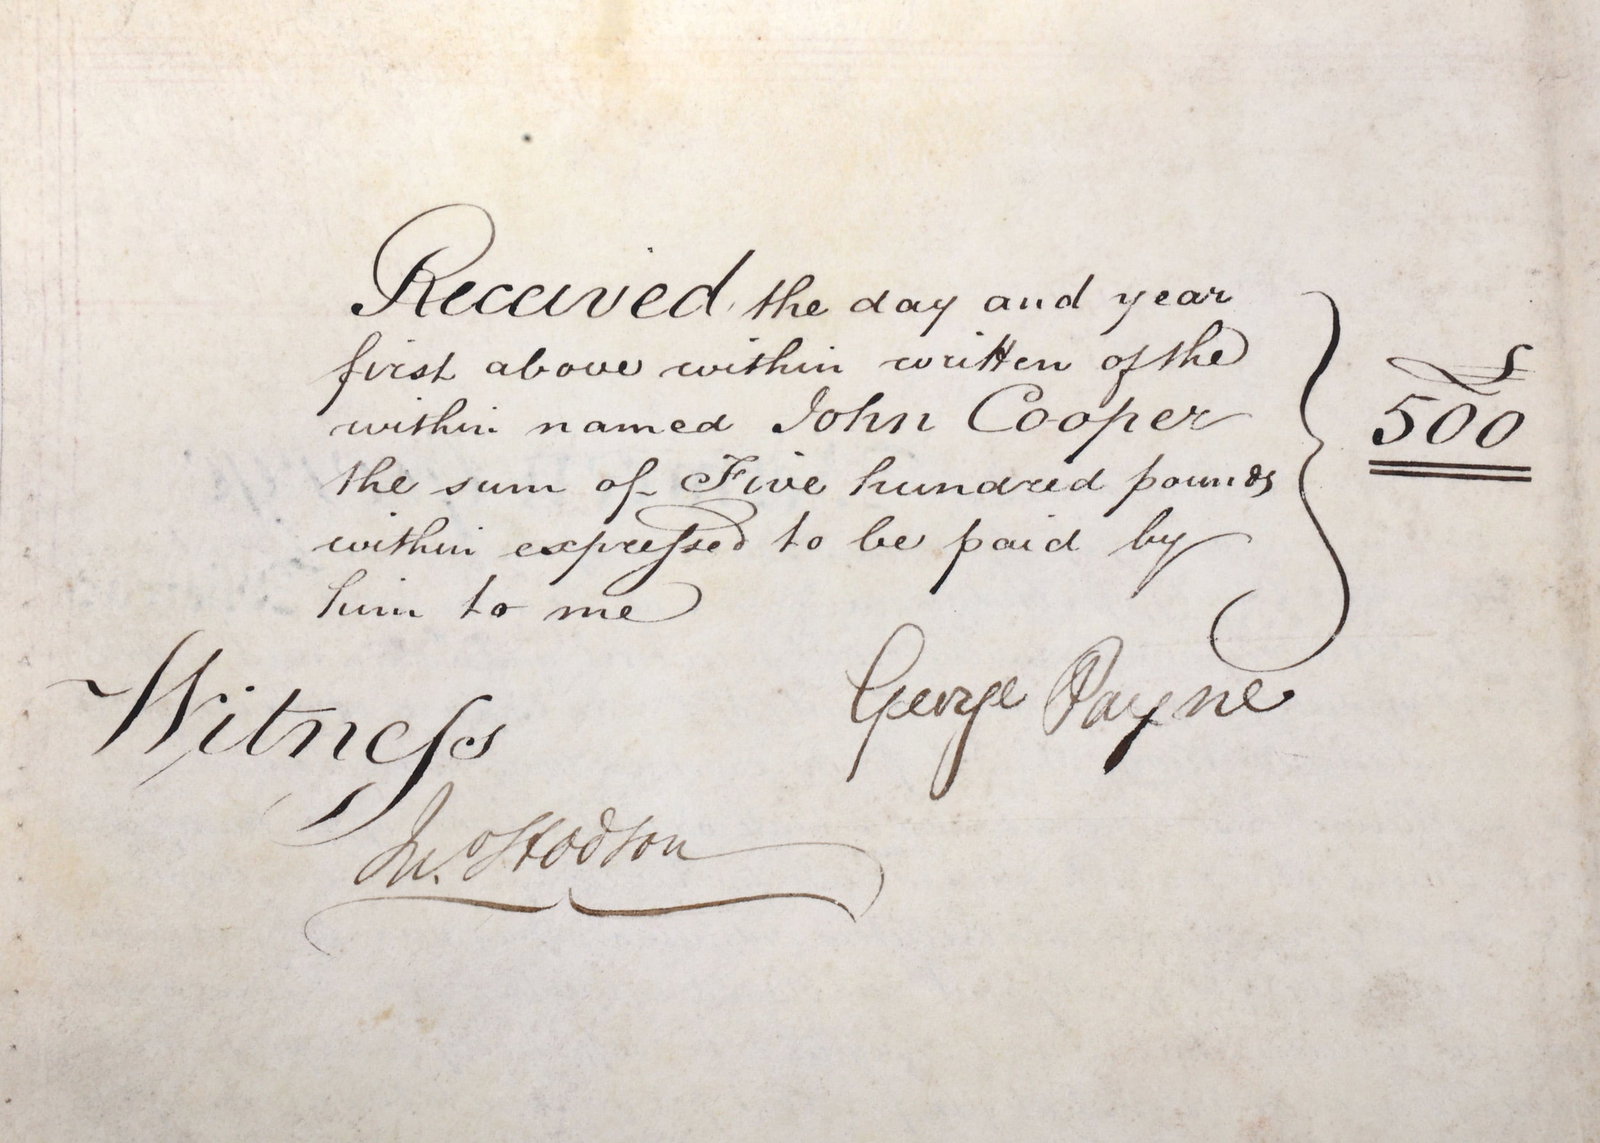 Received the day and year
first above within written of the
within named John Cooper
the sum of Five hundred pounds
within expreſsed to be paid by
him to me
£
500
George Payne
Witneſs
Jno. Hodson